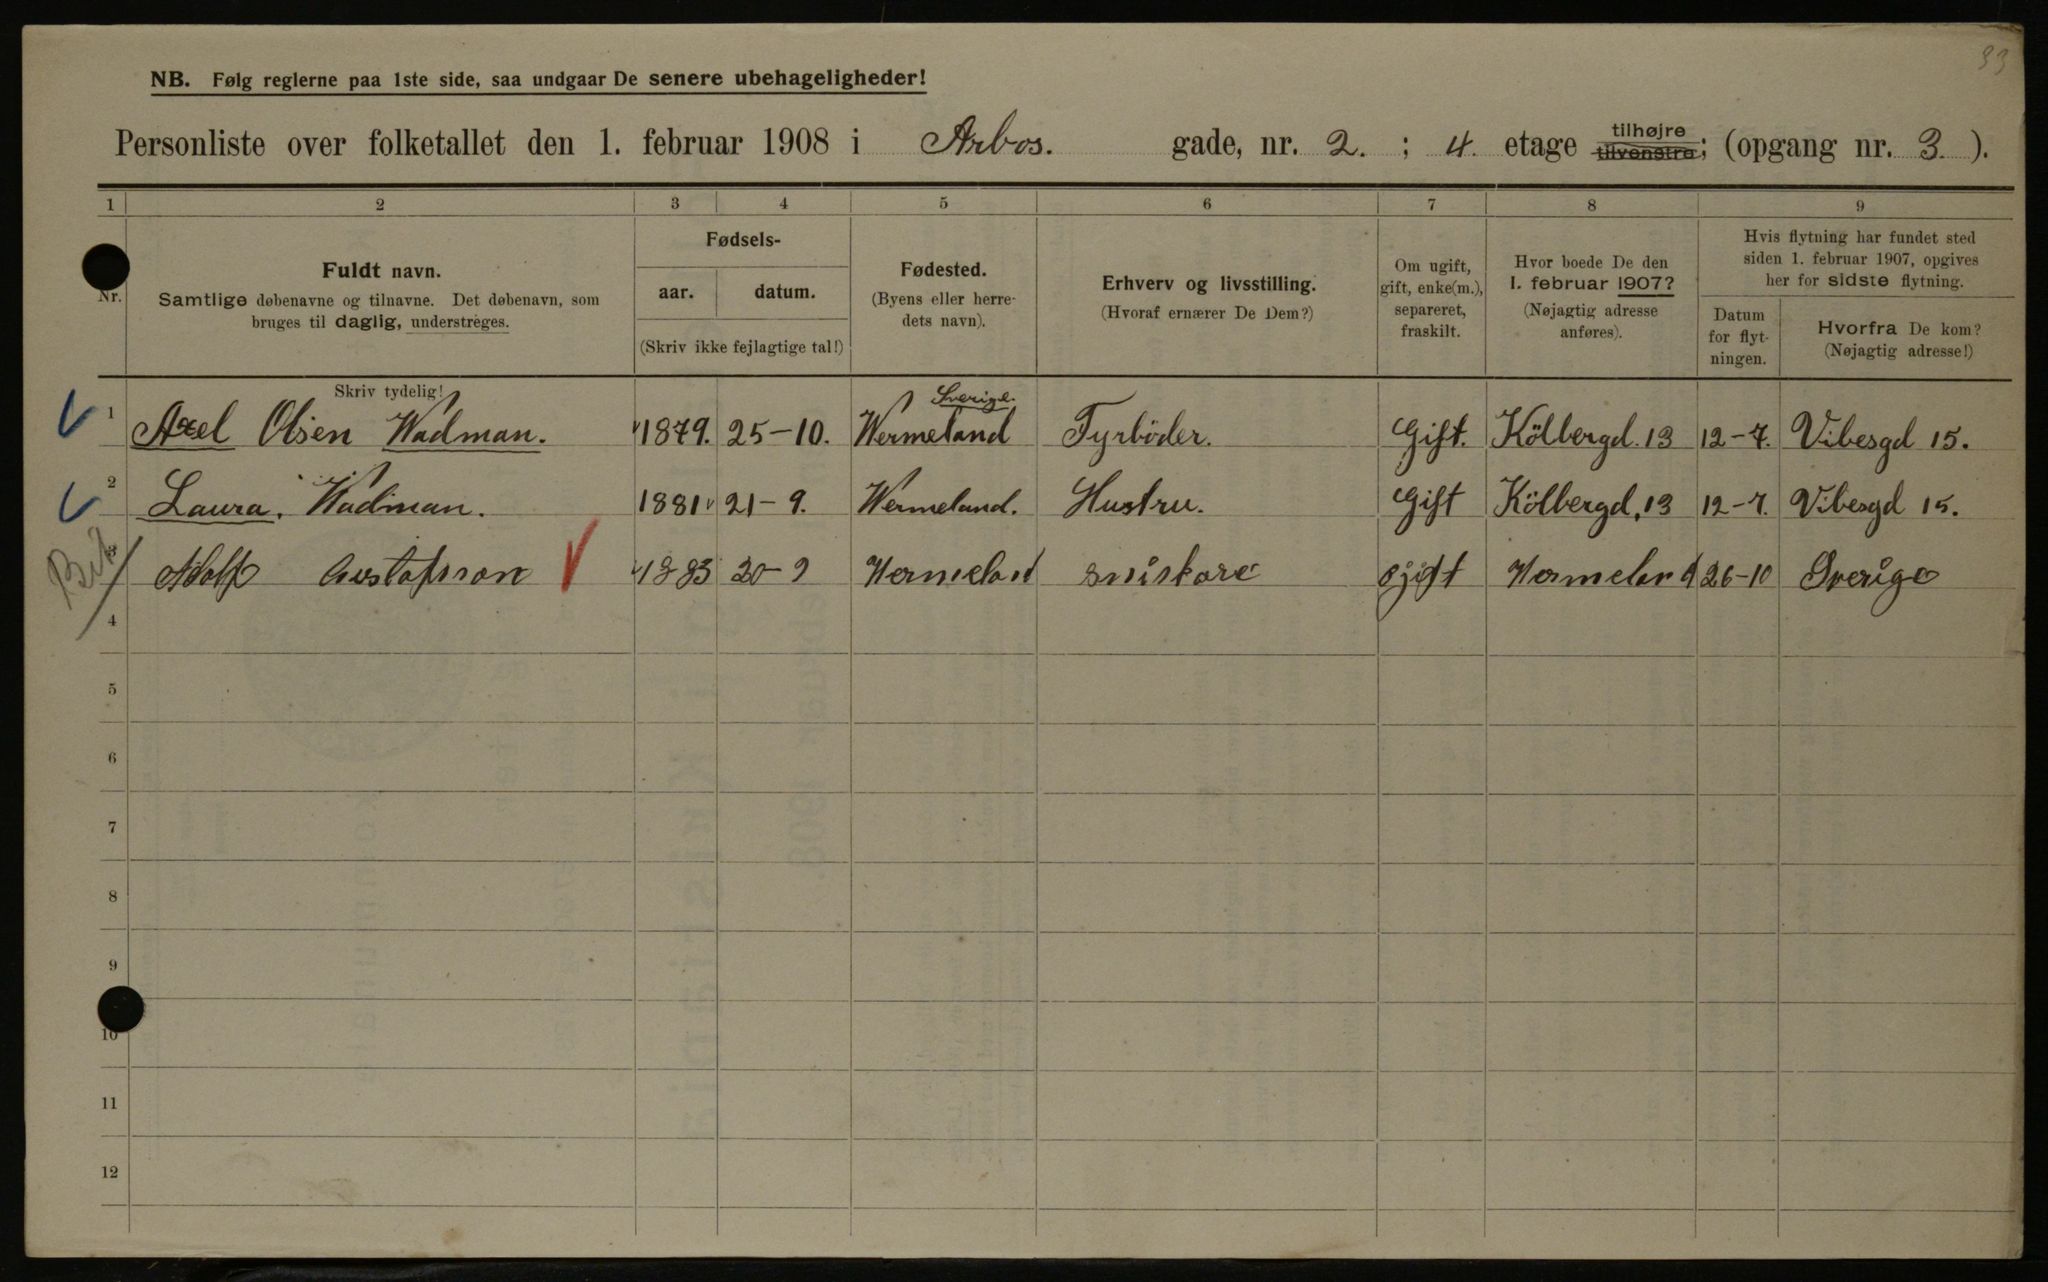 33
NB. Følg reglerne paa 1ste side, saa undgaar De senere ubehageligheder!
Personliste over folketallet den 1. februar 1908 i Arbos. gade, nr. 2. ; 4. etage tilhøjre tilvenstre; (opgang nr. 3. ).
1 2 3 4 5 6 7 8 9
Nr.
Fuldt navn.
Samtlige døbenavne og tilnavne. Det døbenavn, som
bruges til daglig, understreges.
Skriv tydelig!
Fødsels-
aar. datum.
(Skriv ikke fejlagtige tal!)
Fødested.
(Byens eller herre-
dets navn).
Erhverv og livsstilling.
(Hvoraf ernærer De Dem?)
Om ugift,
gift, enke(m.),
separeret,
fraskilt.
Hvor boede De den
1. februar 1907?
(Nøjagtig adresse
anføres).
Hvis flytning har fundet sted
siden 1. februar 1907, opgives
her for sidste flytning.
Datum
for flyt-
ningen.
Hvorfra De kom?
(Nøjagtig adresse!)
Sverige.
1 Axel Olsen Wadman. 1879. 25-10. Wermeland Fyrböder. Gift. Kölbergd. 13 12-7. Vibesgd 15.
2 Laura. Wadman. 1881 21-9. Wermeland. Hustru. Gift Kölbergd, 13 12-7. Vibesgd 15.
3 Adolf Gustafsson 1883 30-9 Wermeland snickare ogift Wermeland 26-10 Sverige
4
5
6
7
8
9
10
11
12